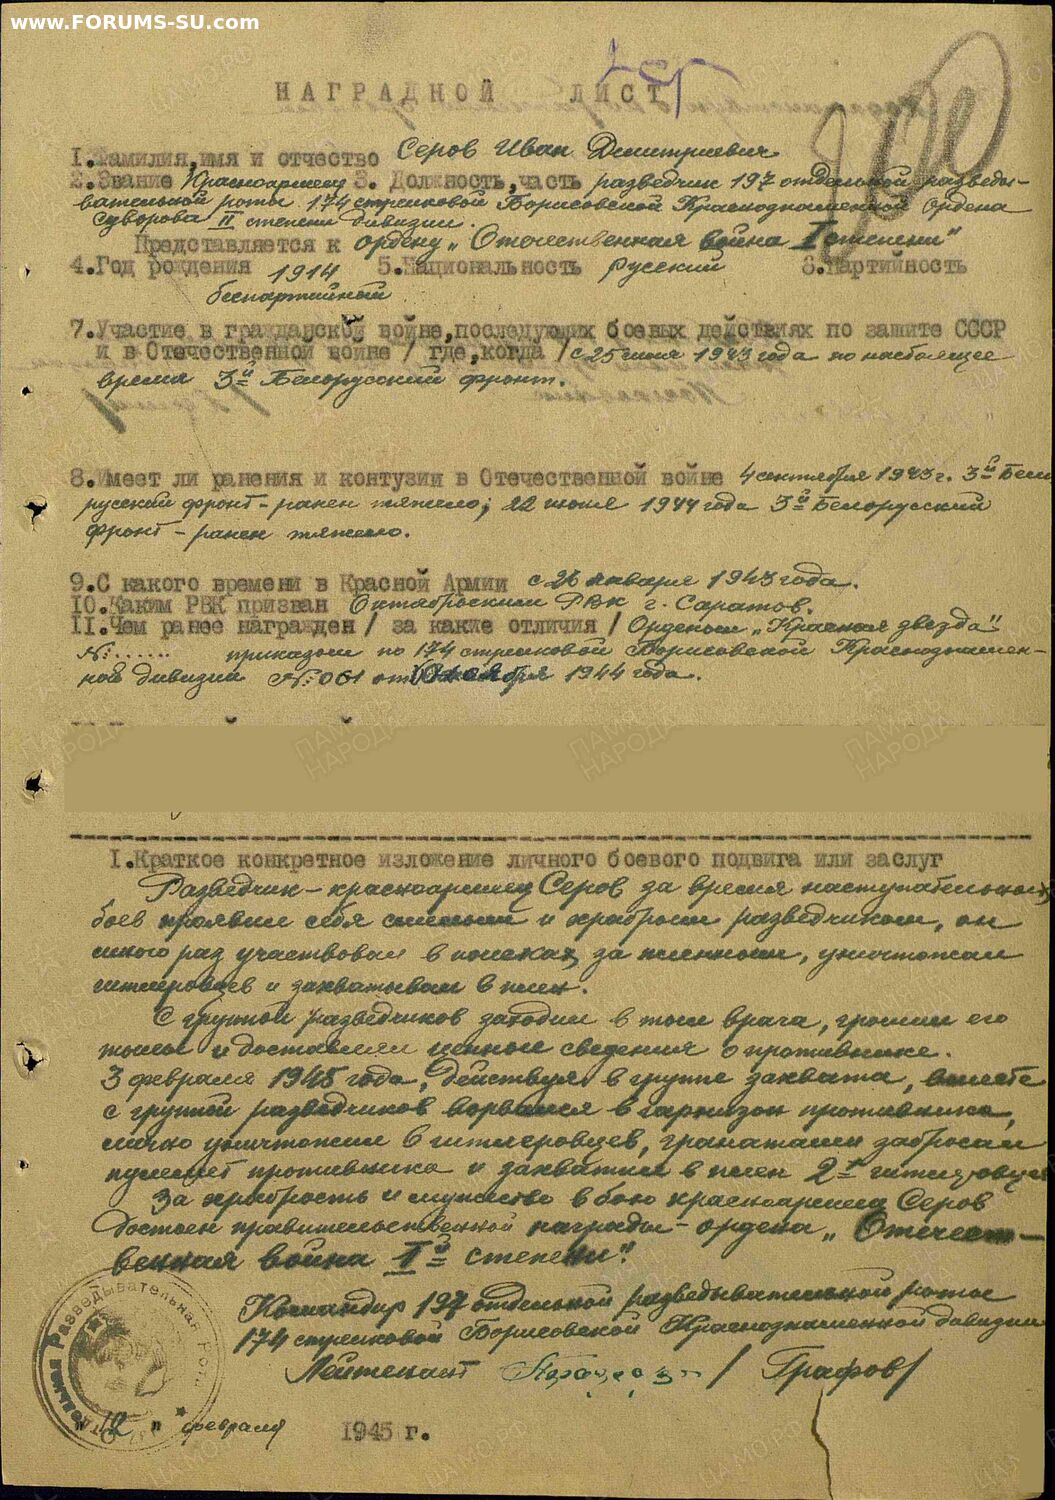 www.FORUMS-SU.com
НАГРАДНОЙ ЛИСТ
1.Фамилия,имя и отчество Серов Иван Дмитриевич
2.Звание Красноармеец 3. Должность,часть разведчик 197 отдельной разведы-
вательной роты 174 стрелковой Борисовской Краснознаменной ордена
Суворова II степени дивизии.
Представляется к ордену „Отечественная война I степени"
4.Год рождения 1914 5.Национальность русский 6.Партийность
беспартийный
7.Участие в гражданской войне,последующих боевых действиях по защите СССР
и в Отечественной войне / где,когда / с 25 1943 года по настоящее
время 3й Белорусский фронт.
8.Имеет ли ранения и контузии в Отечественной войне 4 сентября 1943 г. 3й Бело
русский фронт - ранен тяжело; 22 июня 1944 года 3й Белорусский
фронт - ранен тяжело.
9.С какого времени в Красной Армии с 26 января 1943 года.
10.Каким РВК призван Октябрьским РВК г. Саратов.
11.Чем ранее награжден / за какие отличия / Орденом „Красная звезда"
№...... приказом по 174 стрелковой Борисовской Краснознамен-
ной дивизии №: 061 от 1944 года.
1.Краткое конкретное изложение личного боевого подвига или заслуг
Разведчик - красноармеец Серов за время наступательных
боев проявил себя смелым и храбрым разведчиком, он
много раз участвовал в поисках за пленными, уничтожал
гитлеровцев и захватывал в плен.
С группой разведчиков заходил в тыл врача, громил его
тылы и доставлял ценные сведения о противнике.
3 февраля 1945 года, действуя в группе захвата, вместе
с группой разведчиков ворвался в гарнизон противника,
лично уничтожил 6 гитлеровцев, гранатами забросал
пулемет противника и захватил в плен 2х гитлеровцев
За храбрость и мужество в бою красноармеец Серов
достоин правительственной награды - ордена „Отечест-
венная война Iй степени".
Командир 197 отдельной разведывательной роты
174 стрелковой Борисовской Краснознаменной дивизии
Лейтенант / Графов/
Разведывательная Рота
„12" февраля 1945 г.